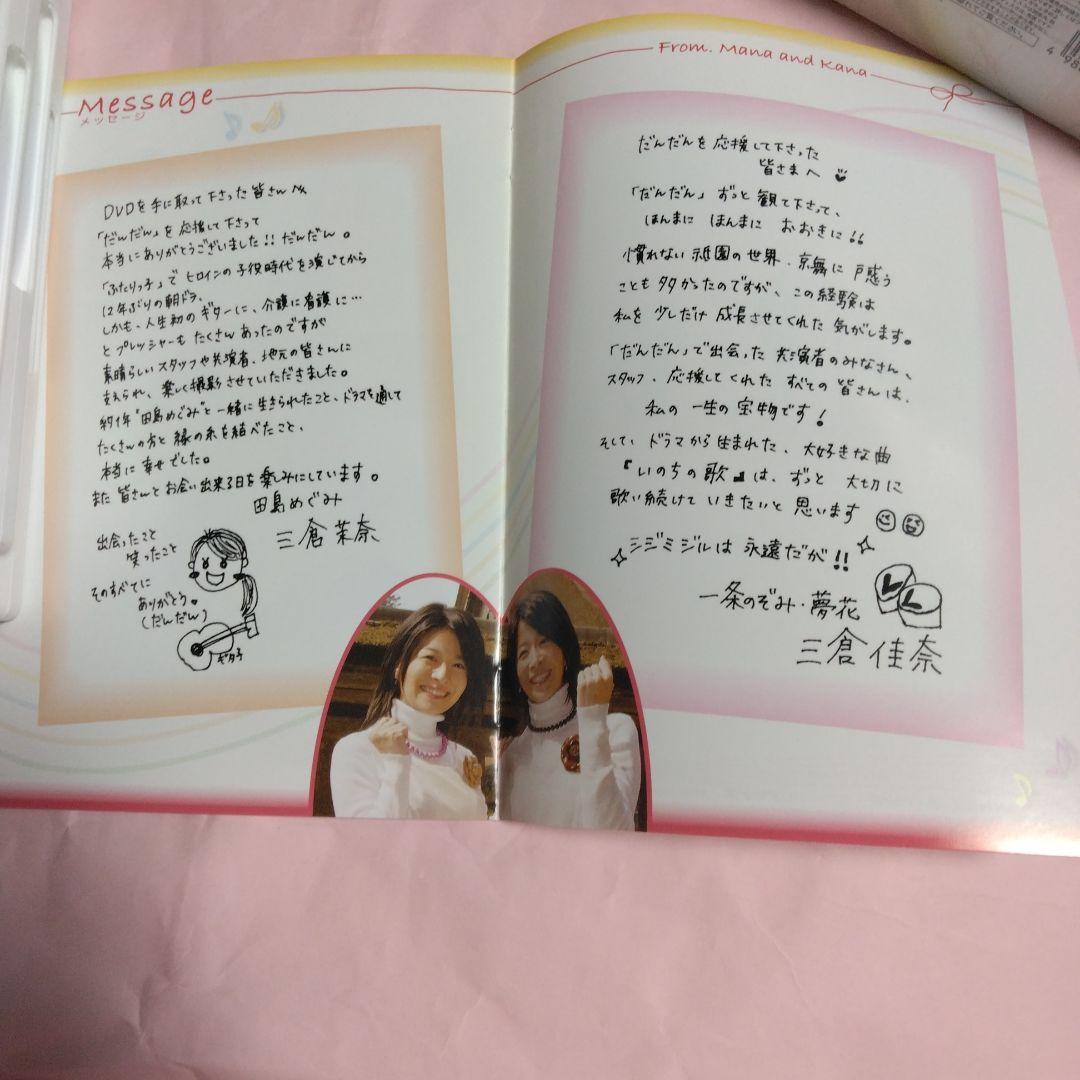 Message
メッセージ
DVDを手に取って下さった皆さんへ
「だんだん」を応援して下さって
本当にありがとうございました!! だんだん。
「ふたりっ子」でヒロインの子役時代を演じてから
12年ぶりの朝ドラ、
しかも、人生初のギターに、介護に看護に…
とプレッシャーもたくさんあったのですが
素晴らしいスタッフや共演者、地元の皆さんに
支えられ、楽しく撮影させていただきました。
約1年"田島めぐみ"と一緒に生きられたこと、ドラマを通して
たくさんの方と縁の糸を結べたこと、
本当に幸せでした。
また皆さんとお会い出来る日を楽しみにしています。
田島めぐみ
三倉茉奈
出会ったこと
笑ったこと
そのすべてに
ありがとう。
(だんだん)
ギタ子
From. Mana and Kana
だんだんを応援して下さった
皆さまへ
「だんだん」ずっと観て下さって、
ほんまに ほんまに おおきに!!
慣れない祇園の世界、京舞に戸惑う
ことも多かったのですが、この経験は
私を少しだけ成長させてくれた気がします。
「だんだん」で出会った共演者のみなさん、
スタッフ、応援してくれたすべての皆さんは、
私の一生の宝物です!
そして、ドラマから生まれた、大好きな曲
『いのちの歌』は、ずっと大切に
歌い続けていきたいと思います
シジミジルは永遠だが!!
一条のぞみ・夢花
三倉佳奈